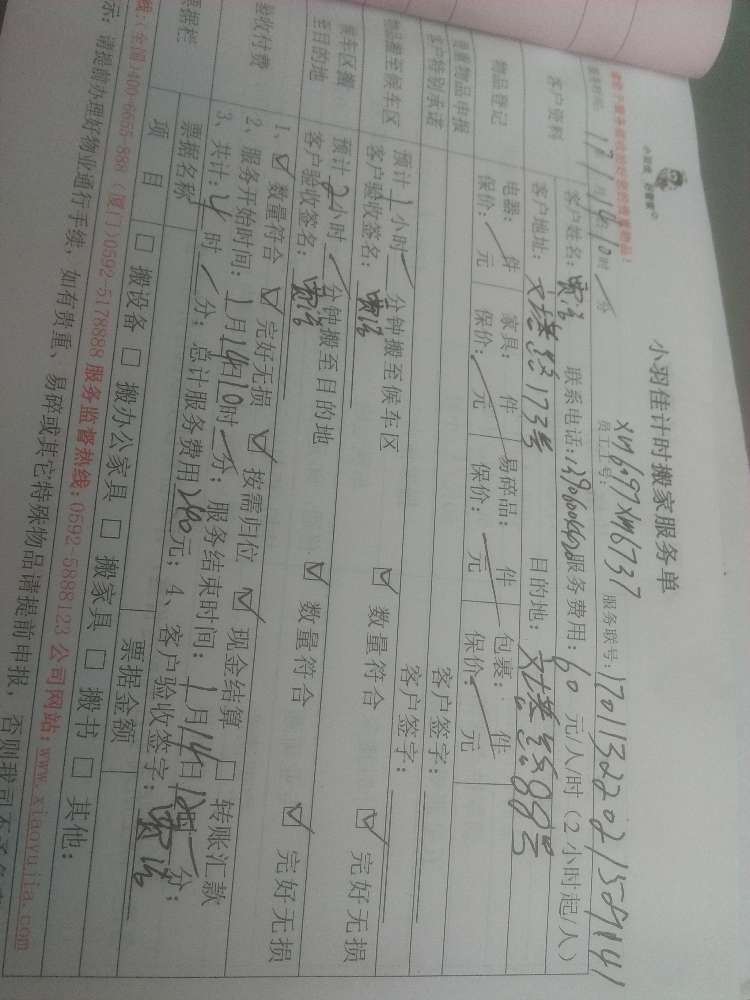 小羽佳计时搬家服务单
小羽佳 好管家
员工工号: XM6697 XM6737 服务联号:
17年1月14日10时/分
客户资料
客户姓名: 联系电话: 服务费用: 60元/人/时(2小时起/人)
客户地址: 173号 目的地: 88号
物品登记
电器: / 件 家具: 件 易碎品: 件 包裹: 件
保价: / 元 保价: 元 保价: 元 保价: 元
贵重物品申报 客户签字:
客户特别承诺 客户签字:
物品搬至候车区
预计1小时/分钟搬至候车区 ☑ 数量符合 ☑ 完好无损
客户验收签名:
候车区搬至目的地
预计2小时/分钟搬至目的地 ☑ 数量符合 ☑ 完好无损
客户验收签名:
验收付费
1、☑ 数量符合 ☑ 完好无损 ☑ 按需归位 ☑ 现金结算 □ 转账汇款
2、服务开始时间: 1月14日10时/分; 服务结束时间: 1月14日12时/分;
3、共计: 4时/分; 总计服务费用240元; 4、客户验收签字:
票据栏
票据名称 票据金额
项 目 □ 搬设备 □ 搬办公家具 □ 搬家具 □ 搬书 □ 其他:
(全国)400-6655-888 (厦门)0592-5178888 服务监督热线:0592-5888123 公司网站:www.xiaoyujia.com
示: 请提前办理好物业通行手续, 如有贵重、易碎或其它特殊物品请提前申报, 否则我司不